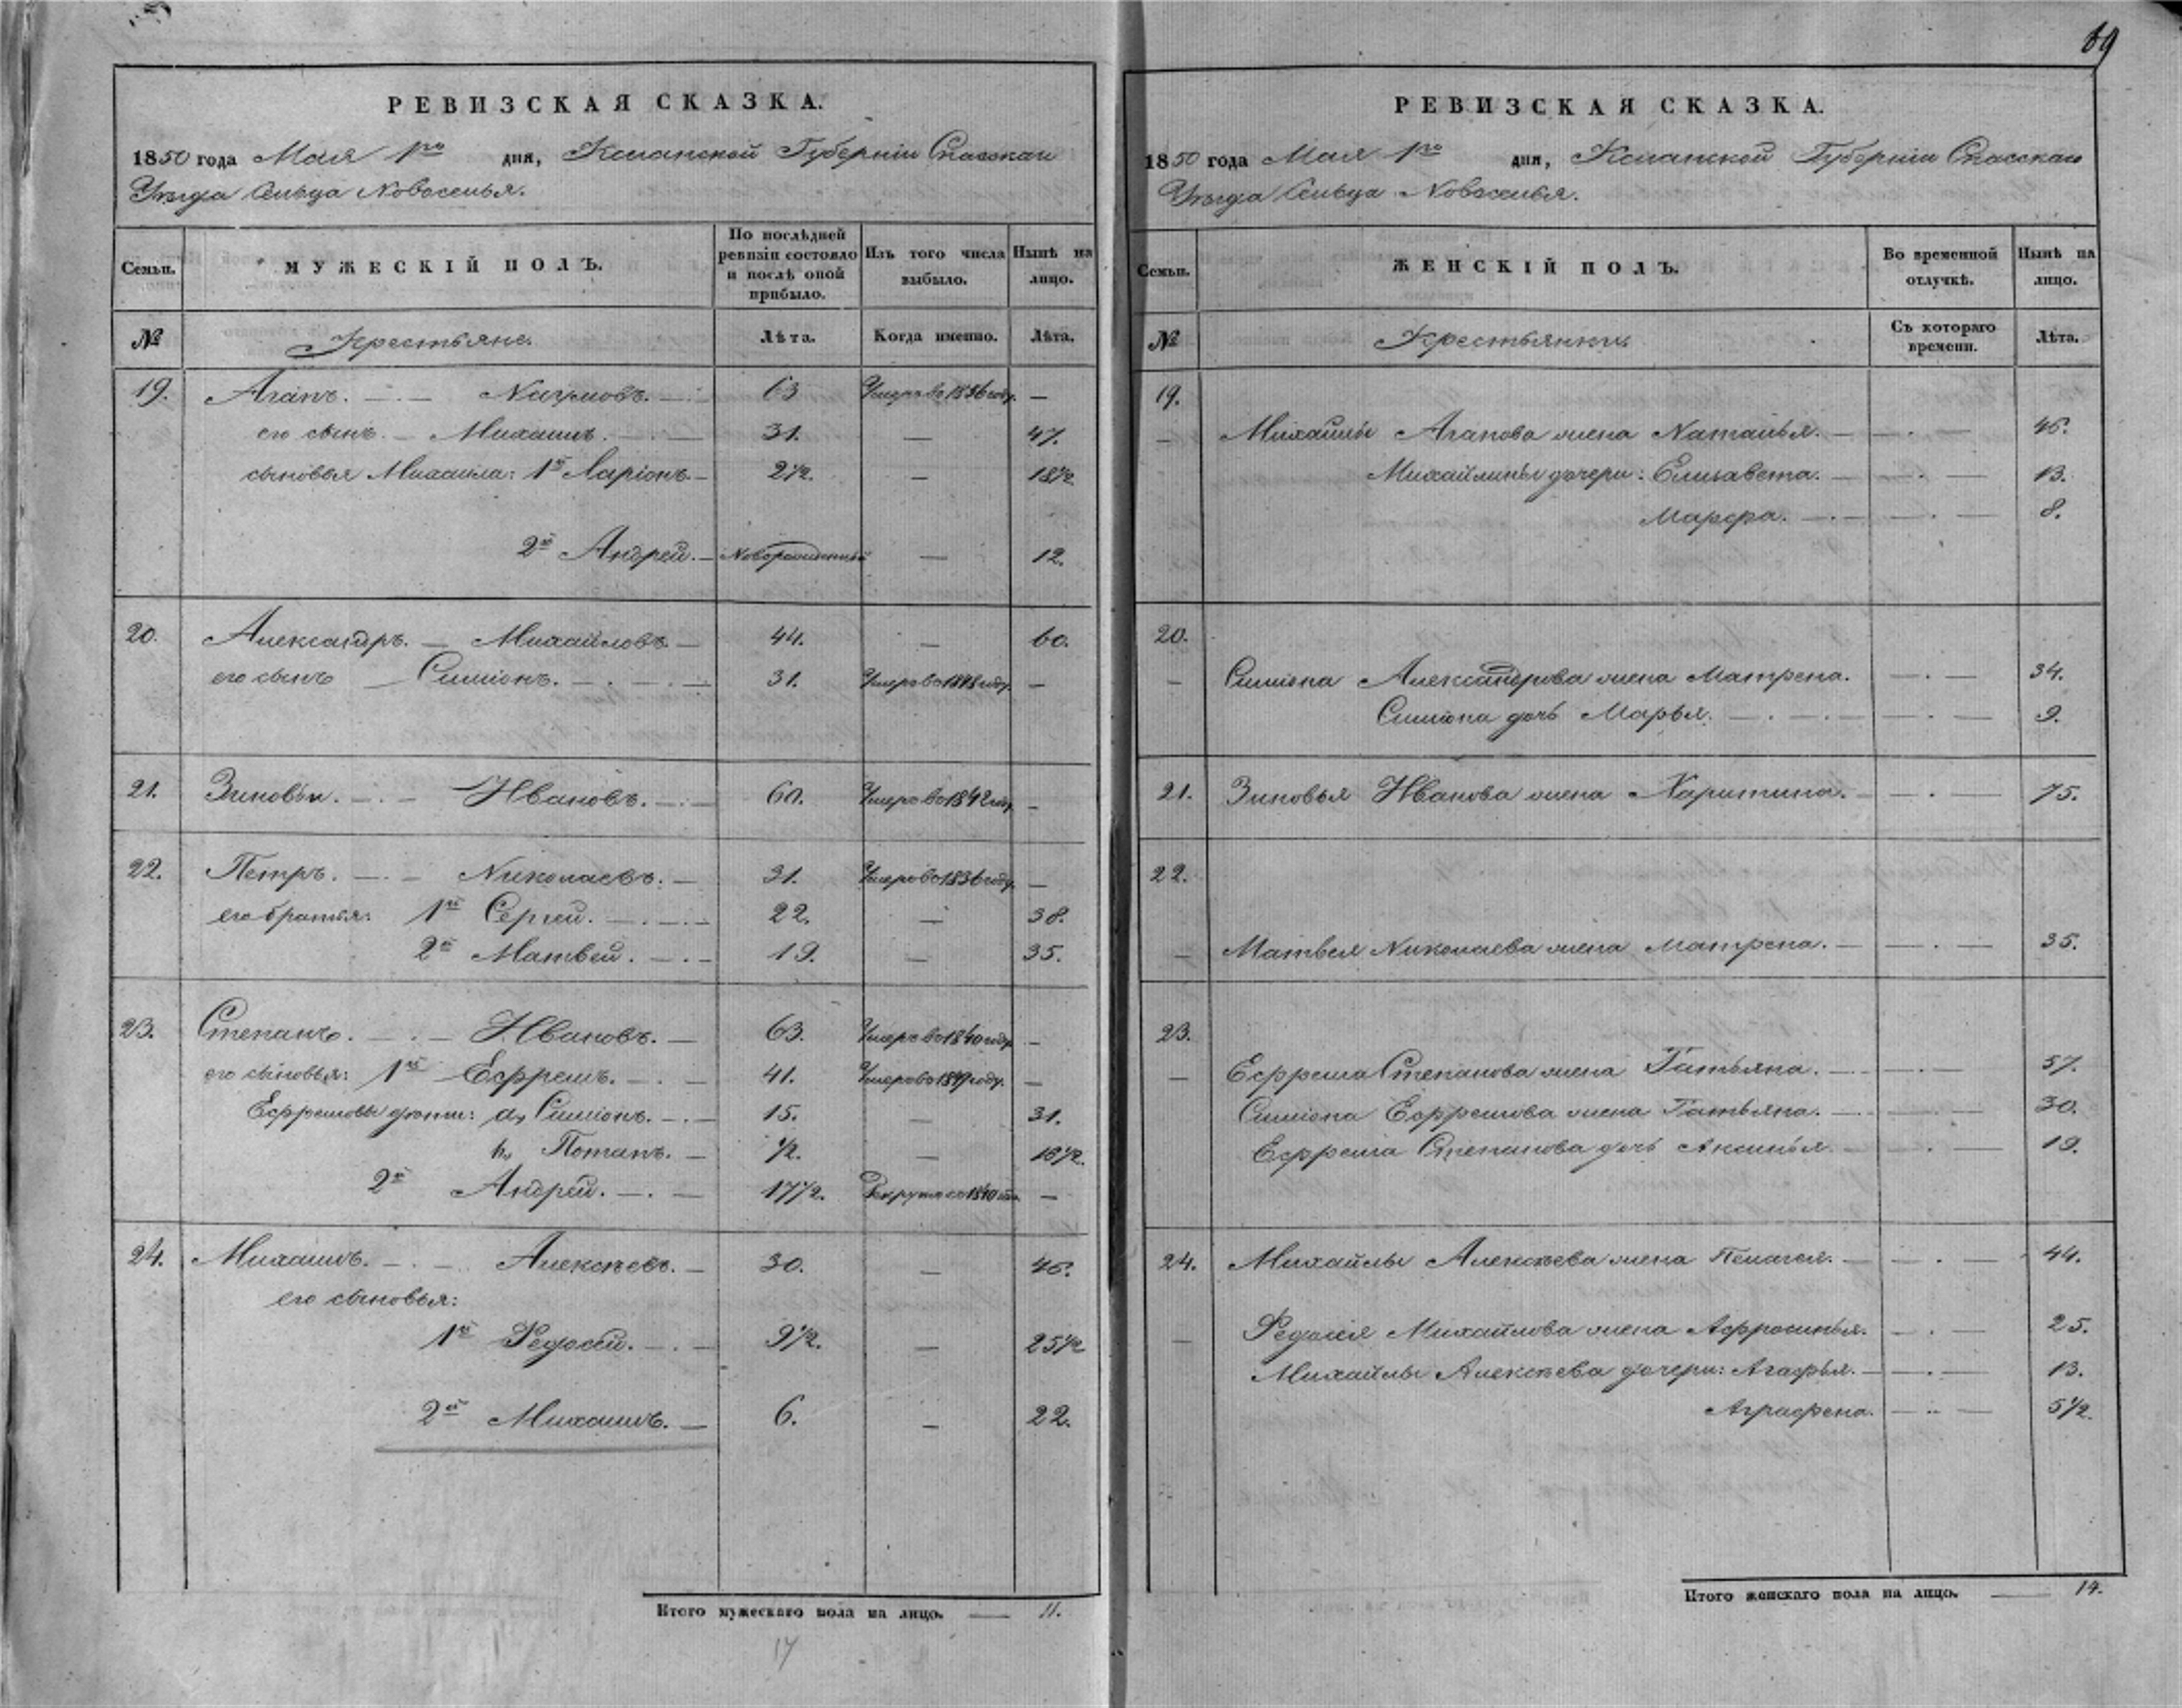 69
РЕВИЗСКАЯ СКАЗКА.
1850 года Мая 1го дня, Казанской Губерніи Спасскаго
Уѣзда Сельца Новоселья.
Семьи.
МУЖЕСКІЙ ПОЛЪ.
По послѣдней ревизіи состояло и послѣ оной прибыло.
Изъ того числа выбыло.
Нынѣ на лицо.
№ Крестьяне. Лѣта. Когда именно. Лѣта.
19. Агапъ. Наумовъ. 63 Умеръ въ 1836 году. —
его сынъ. Михаилъ. 31. — 47.
сыновья Михаила: 1й Ларіонъ. 2½. — 18½
2й Андрей. Новорожденный — 12.
20. Александръ. Михайловъ. 44. — 60.
его сынъ Симіонъ. 31. Умеръ въ 1848 году. —
21. Зиновій. Ивановъ. 60. Умеръ въ 1842 году. —
22. Петръ. Николаевъ. 31. Умеръ въ 1836 году. —
его братья: 1й Сергей. 22. — 38.
2й Матвей. 19. — 35.
23. Степанъ. Ивановъ. 63. Умеръ въ 1840 году —
его сыновья: 1й Ефремъ. 41. Умеръ въ 1849 году. —
Ефремовы дѣти: а, Симіонъ. 15. — 31.
Потапъ. ½. — 16½.
2й Андрей. 17½. —
24. Михаилъ. Алексѣевъ. 30. — 46.
его сыновья:
1й Федосей. 9½. — 25½
2й Михаилъ. 6. — 22.
Итого мужескаго пола на лицо. — 11.
17
РЕВИЗСКАЯ СКАЗКА.
1850 года Мая 1го дня, Казанской Губерніи Спасскаго
Уѣзда Сельца Новоселья.
Семьи.
ЖЕНСКІЙ ПОЛЪ.
Во временной отлучкѣ.
Нынѣ на лицо.
№ Крестьянки. Съ котораго времени. Лѣта.
19.
— Михайлы Агапова жена Наталья. — 46.
Михайлины дочери: Елизавета. — 13.
Марфа. — 8.
20.
— Симіона Александрова жена Матрена. — 34.
Симіона дочь Марья. — 9.
21. Зиновья Иванова жена Харитина. — 75.
22.
— Матвея Николаева жена Матрена. — 35.
23.
— Ефрема Степанова жена Татьяна. — 57.
Симіона Ефремова жена Татьяна. — 30.
Ефрема Степанова дочь Аксинья. — 19.
24. Михайлы Алексѣева жена Пелагея. — 44.
— Федосея Михайлова жена Афросинья. — 25.
Михайлы Алексѣева дочери: Агафья. — 13.
Аграфена. — 5½.
Итого женскаго пола на лицо. — 14.